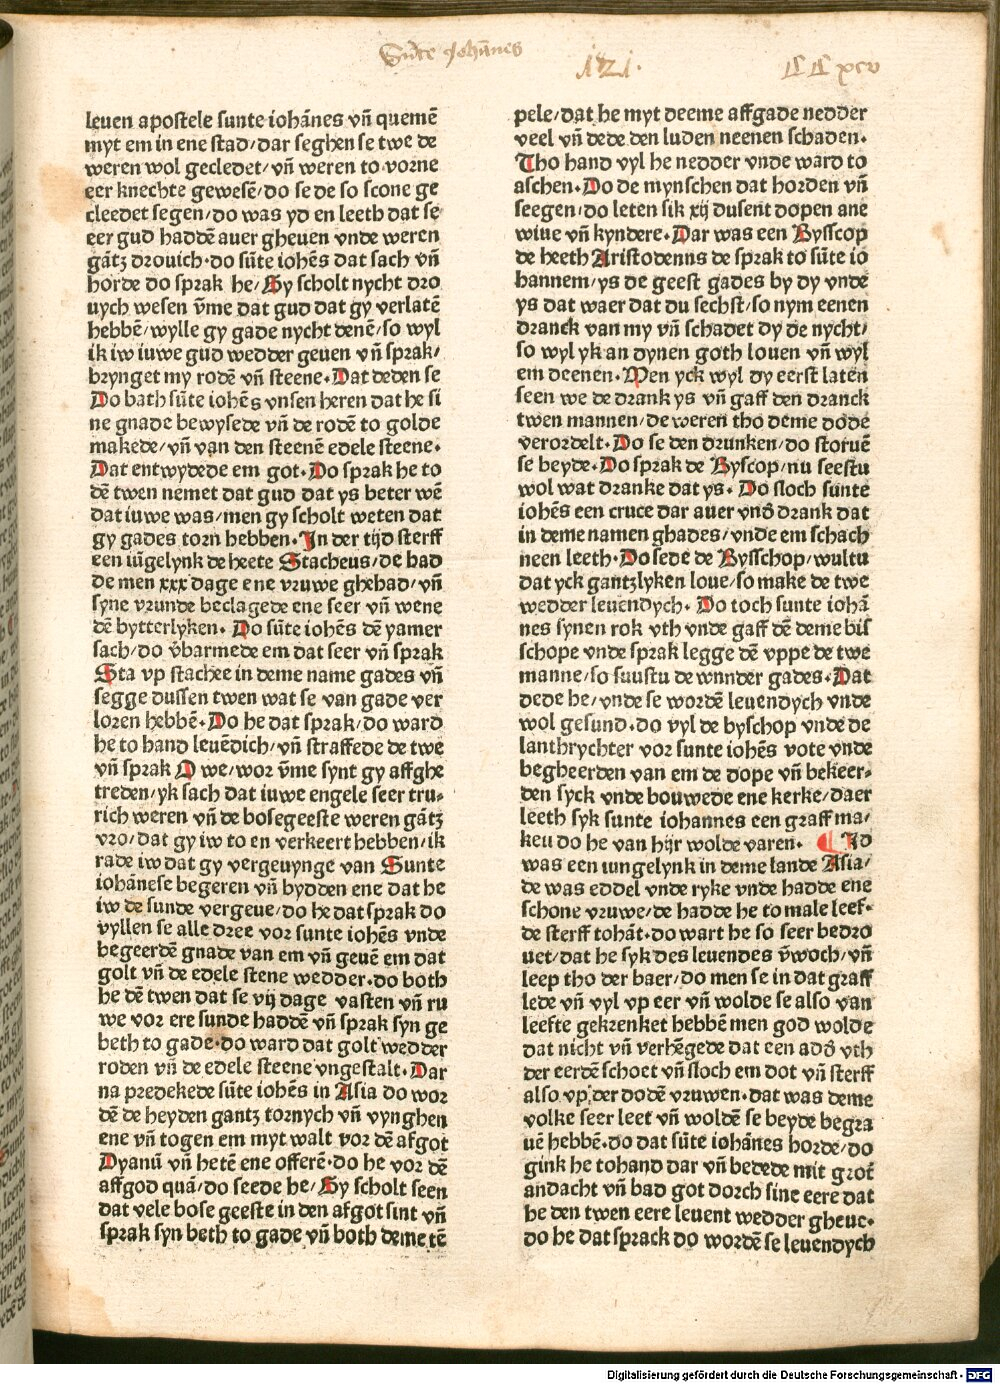 Sūte Johānes
121.
CC xcv
leuen apostele sunte iohānes vñ quemē
myt em in ene stad/dar seghen se twe de
weren wol gecledet/vñ weren to vorne
eer knechte gewesē/do se de so scone ge
cleedet segen/do was yd en leeth dat se
eer gud haddē auer gheuen vnde weren
gātz drouich·do sūte iohēs dat sach vñ
horde do sprak he/Gy scholt nycht dro
uych wesen v̄me dat gud dat gy verlatē
hebbē/wylle gy gade nycht denē/so wyl
ik iw iuwe gud wedder geuen vñ sprak/
brynget my rodē vñ steene·Dat deden se
Do bath sūte iohēs vnsen heren dat he si
ne gnade bewysede vñ de rodē to golde
makede/vñ van den steenē edele steene·
Dat entwydede em got·Do sprak he to
dē twen nemet dat gud dat ys beter wē
dat iuwe was/men gy scholt weten dat
gy gades torn hebben·In der tijd sterff
een iūgelynk de heete Stacheus/de had
de men xxx dage ene vruwe ghehad/vñ
syne vrunde beclagede ene seer vñ wene
dē bytterlyken·Do sūte iohēs dē yamer
sach/do v̄barmede em dat seer vñ sprak
Sta vp stachee in deme name gades vñ
segge dussen twen wat se van gade ver
loren hebbē·Do he dat sprak/do ward
he to hand leuēdich/vñ straffede de twe
vñ sprak O we/wor v̄me synt gy affghe
treden/yk sach dat iuwe engele seer tru-
rich weren vñ de bosegeeste weren gātz
vro/dat gy iw to en verkeert hebben/ik
rade iw dat gy vergeuynge van Sunte
iohānese begeren vñ bydden ene dat he
iw de sunde vergeue/do he dat sprak do
vyllen se alle dree vor sunte iohēs vnde
begeerdē gnade van em vñ geuē em dat
golt vñ de edele stene wedder·do both
he dē twen dat se vij dage vasten vñ ru
we vor ere sunde haddē vñ sprak syn ge
beth to gade·do ward dat golt wedder
roden vñ de edele steene vngestalt·Dar
na predekede sūte iohēs in Asia do wor
dē de heyden gantz tornych vñ vynghen
ene vñ togen em myt walt vor dē afgot
Dyanū vñ hetē ene offerē·do he vor dē
affgod quā/do seede he/Gy scholt seen
dat vele bose geeste in den afgot sint vñ
sprak syn beth to gade vñ both deme tē
pele/dat he myt deeme affgade nedder
veel vñ dede den luden neenen schaden·
Tho hand vyl he nedder vnde ward to
aschen·Do de mynschen dat horden vñ
seegen/do leten sik xij dusent dopen ane
wiue vñ kyndere·Dar was een Bysscop
de heeth Aristodenns de sprak to sūte io
hannem/ys de geest gades by dy vnde
ys dat waer dat du sechst/so nym eenen
dranck van my vñ schadet dy de nycht/
so wyl yk an dynen goth louen vñ wyl
em deenen·Men yck wyl dy eerst laten
seen we de drank ys vñ gaff den dranck
twen mannen/de weren tho deme dode
verordelt·Do se den drunken/do storuē
se beyde·Do sprak de Byscop/nu seestu
wol wat dranke dat ys·Do sloch sunte
iohēs een cruce dar auer vnd̄ drank dat
in deme namen ghades/vnde em schach
neen leeth·Do sede de Bysschop/wultu
dat yck gantzlyken loue/so make de twe
wedder leuendych·Do toch sunte iohā
nes synen rok vth vnde gaff dē deme bis
schope vnde sprak legge dē vppe de twe
manne/so suustu de wnnder gades·Dat
dede he/vnde se wordē leuendych vnde
wol gesund·do vyl de byschop vnde de
lanthrychter vor sunte iohēs vote vnde
begheerden van em de dope vñ bekeer-
den syck vnde bouwede ene kerke/daer
leeth syk sunte iohannes een graff ma-
keu do he van hijr wolde varen· ¶Id
was een iungelynk in deme lande Asia/
de was eddel vnde ryke vnde hadde ene
schone vruwe/de hadde he to male leef-
de sterff tohāt·do wart he so seer bedro
uet/dat he syk des leuendes v̄woch/vñ
leep tho der baer/do men se in dat graff
lede vñ vyl vp eer vñ wolde se also van
leefte gekrenket hebbē men god wolde
dat nicht vñ verhēgede dat een ad̄ vth
der eerdē schoet vñ sloch em dot vñ sterff
also vp der dodē vruwen·dat was deme
volke seer leet vñ woldē se beyde begra
uē hebbē·do dat sūte iohānes horde/do
gink he tohand dar vñ bedede mit grot̄
andacht vñ bad got dorch sine eere dat
he den twen eere leuent wedder gheue·
do he dat sprack do wordē se leuendych
Digitalisierung gefördert durch die Deutsche Forschungsgemeinschaft - DFG